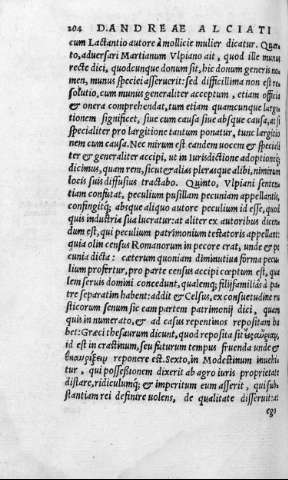 204 D. ANDREAE ALCIATI
cum Lactantio autore à mollicie mulier dicatur. Quar
to, aduersari Martianum Vlpiano ait, quod ille munus
recte dici, quodcunque donum sit, hic donum generis no
men, munus speciei asseruerit: sed difficillima non est re
solutio, cum munus generaliter acceptum, etiam officia
& onera comprehendat, tum etiam quamcunque largi
tionem significet, siue cum causa siue absque causa, at si
specialiter pro largitione tantum ponatur, tunc largitio
nem cum causa. Nec mirum est eandem uocem & speciali
ter & generaliter accipi, ut in Iurisdictione adoptionéq;
dicimus, quam rem, sicut & alias plerasque alibi, nimirum
locis suis diffusius tractabo. Quinto, Vlpiani senten
tiam confutat, peculium pusillam pecuniam appellantis,
confingitq́; absque aliquo autore peculium id esse, quod
quis industria sua lucratur: at aliter ex autoribus dicen
dum est, qui peculium patrimonium testatoris appellant:
quia olim census Romanorum in pecore erat, unde & pe
cunia dicta: cæterum quoniam diminutiua forma pecu
lium profertur, pro parte census accipi cœptum est, qua
lem seruis domini concedunt, qualemq́; filijfamilias à pa
tre separatim habent: addit & Celsus, ex consuetudine ru
sticorum senum sic eam partem patrimonij dici, quam
quis in numerato, & ad casus repentinos repositam ha
bet: Græci thesaurum dicunt, quod reposita sit
id est in crastinum, seu futurum tempus fruenda unde &
reponere est. Sexto, in Modestinum inuehi
tur, qui possessionem dixerit ab agro iuris proprietate
distare, ridiculumq́; & imperitum eum asserit, qui sub
stantiam rei definire uolens, de qualitate disseruit: at
ego